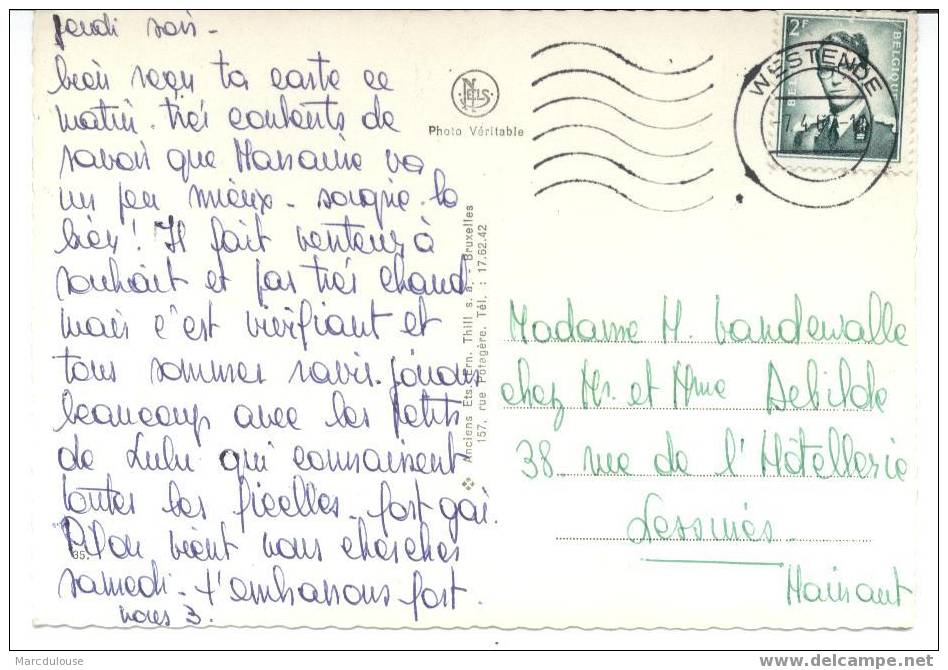 Jeudi soir -
bien reçu ta carte ce
matin. très contents de
savoir que Marraine va
un peu mieux - soigne-la
bien ! Il fait venteux à
souhait et pas très chaud
mais c'est vivifiant et
tous sommes ravis. jouons
beaucoup avec les petits
de Lulu qui connaissent
toutes les ficelles - fort gai.
vient nous chercher
samedi - t'embrassons fort.
nous 3.
35.
NELS
Photo Véritable
Anciens Ets. Ern. Thill s. a. - Bruxelles
157, rue Potagère. Tél. : 17.62.42
WESTENDE
2F
BELGIQUE
Madame M. Vandewalle
chez Mr. et Mme Debilde
38 rue de l'Hôtellerie
Lessines
Hainaut
Marcdulouse
http://www.delcampe.net